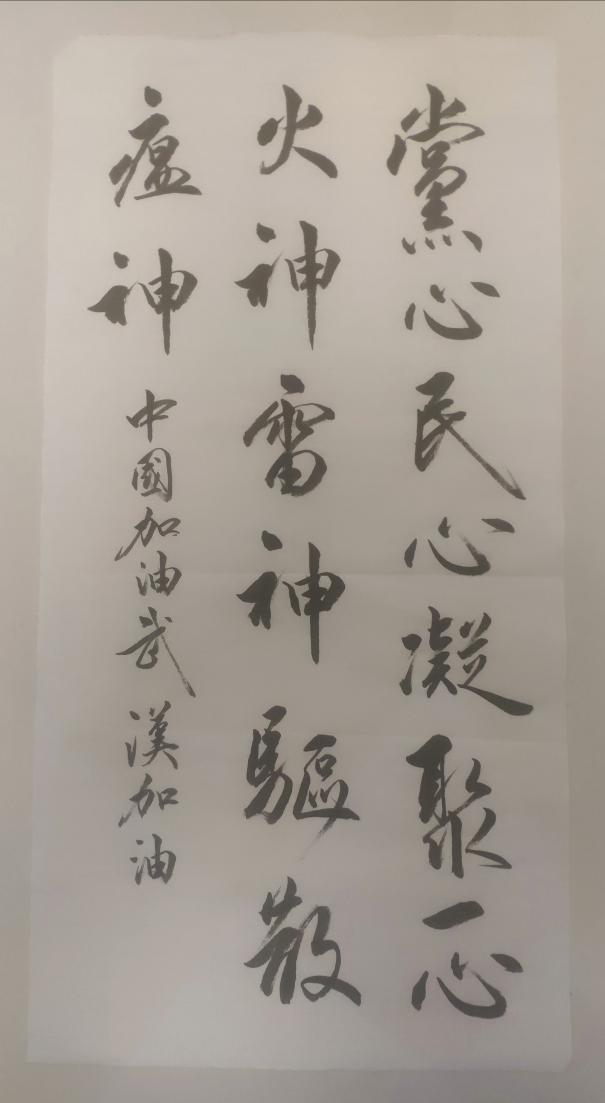 黨心民心凝聚一心
火神雷神驅散
瘟神
中國加油武漢加油